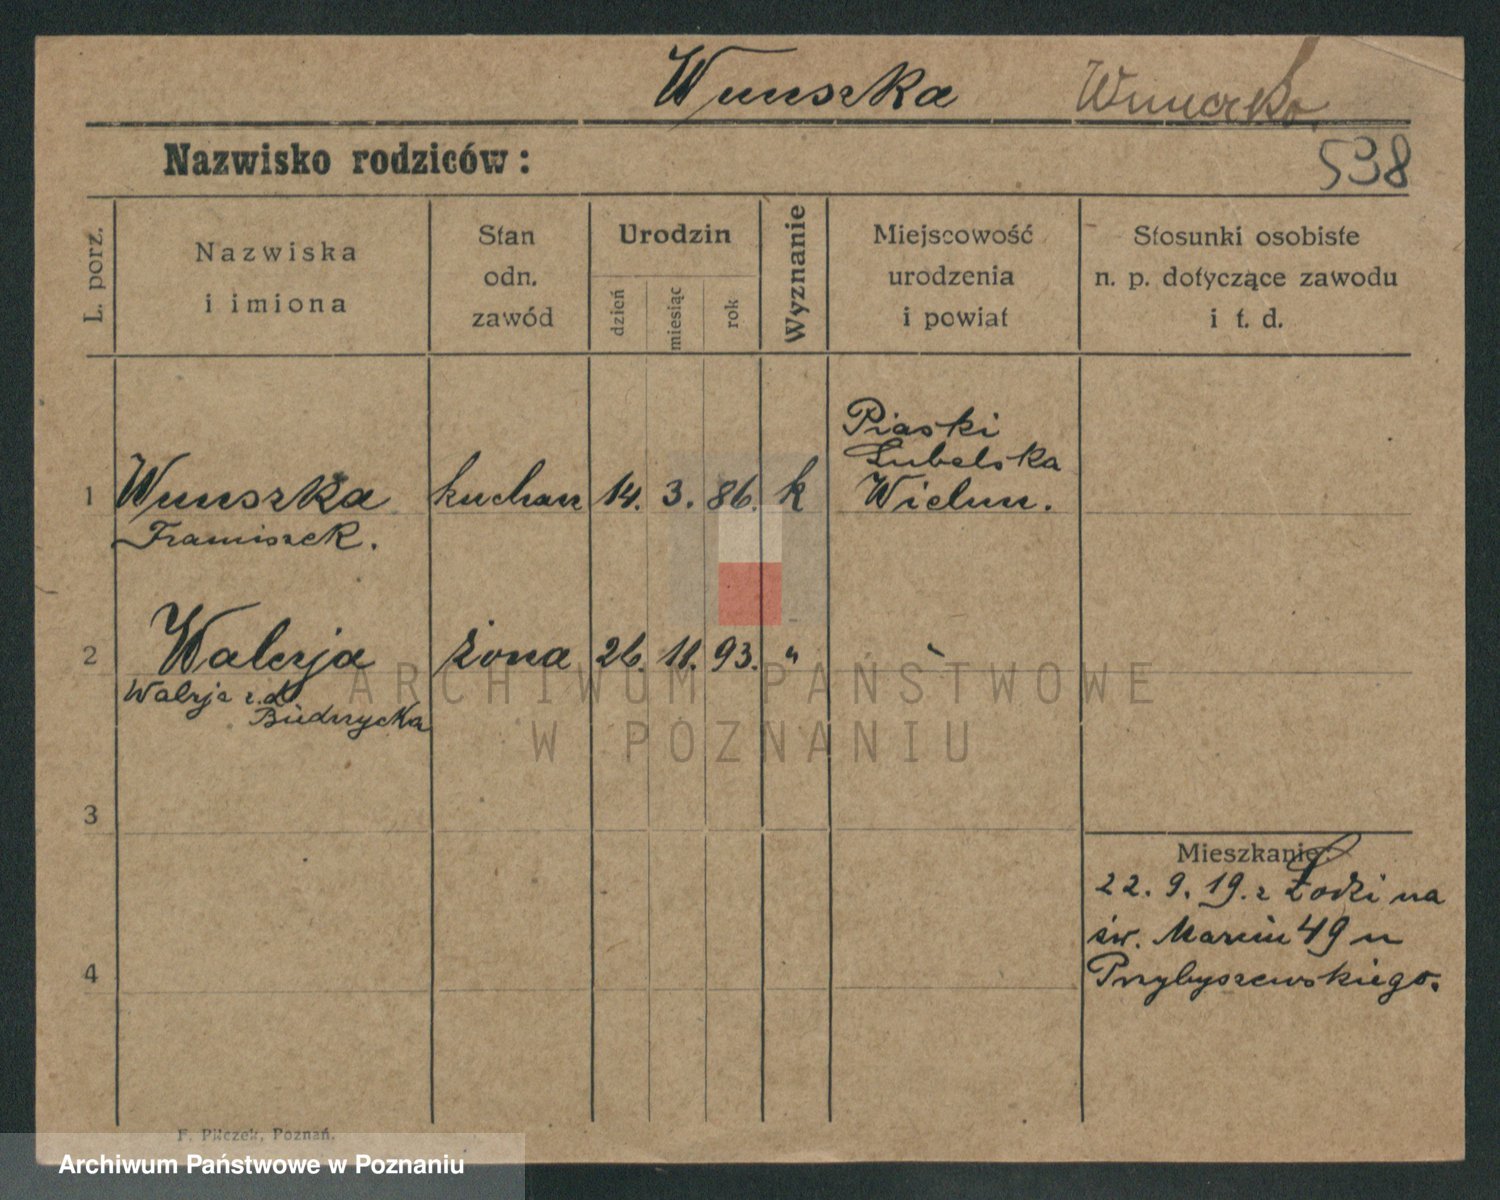 Wnuszka Wnuczko.
Nazwisko rodziców:
538
L. porz.
Nazwiska
i imiona
Stan
odn.
zawód
Urodzin
dzień
miesiąc
rok
Wyznanie
Miejscowość
urodzenia
i powiat
Stosunki osobiste
n. p. dotyczące zawodu
i t. d.
Piaski
Lubelska
1 Wnuszka kucharz 14. 3. 86. k Wielun.
Franciszek.
2 Walerja żona 26. 11. 93. "
Walerja z d.
Budrzycka
ARCHIWUM PAŃSTWOWE
W POZNANIU
3
Mieszkanie:
22. 9. 19. z Łodzi na
św. Marcin 49 u
4
Przybyszewskiego.
F. Pilczek, Poznań.
Archiwum Państwowe w Poznaniu